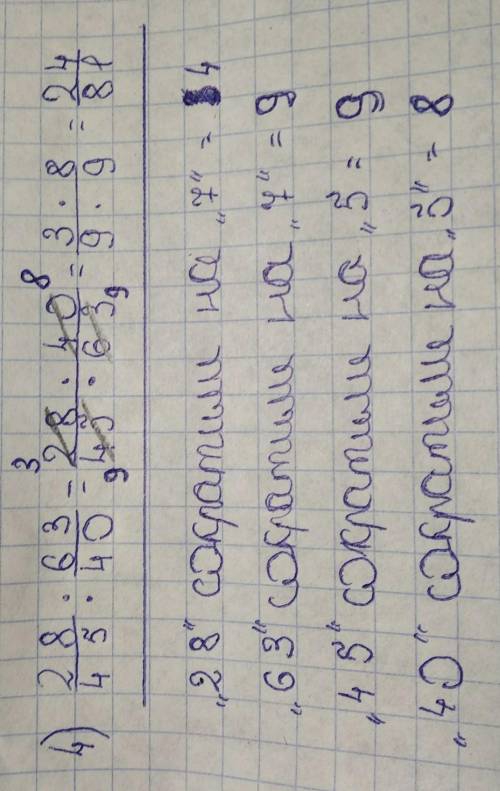 4) 28/45 : 63/40 = 28 · 40 / 45 · 63 = 3 · 8 / 9 · 9 = 24/81
3 8
9 9
„28" сократили на „7" = 4
„63" сократили на „7" = 9
„45" сократили на „5" = 9
„40" сократили на „5" = 8